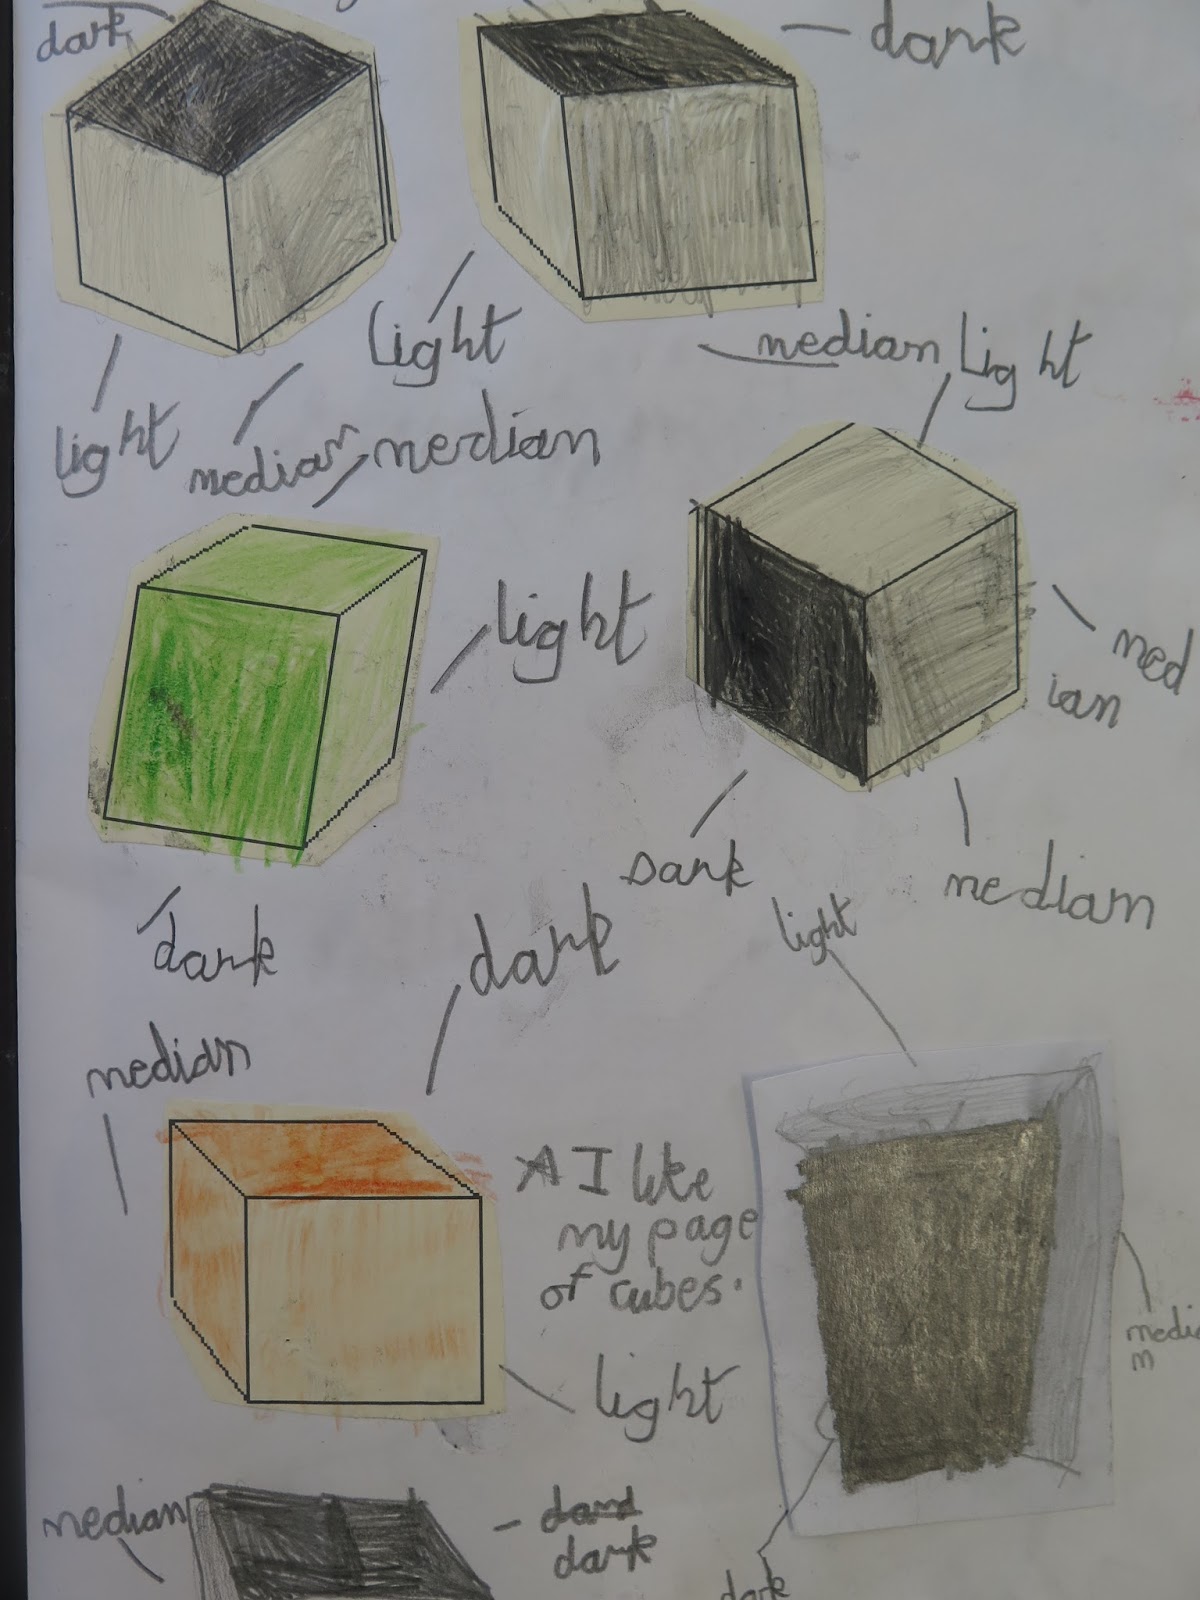 dark
dark
light
median
light
light
median
median
light
med
ian
dark
median
dark
dark
light
median
A I like
my page
of cubes.
light
medi
m
median
dand
dark
dark